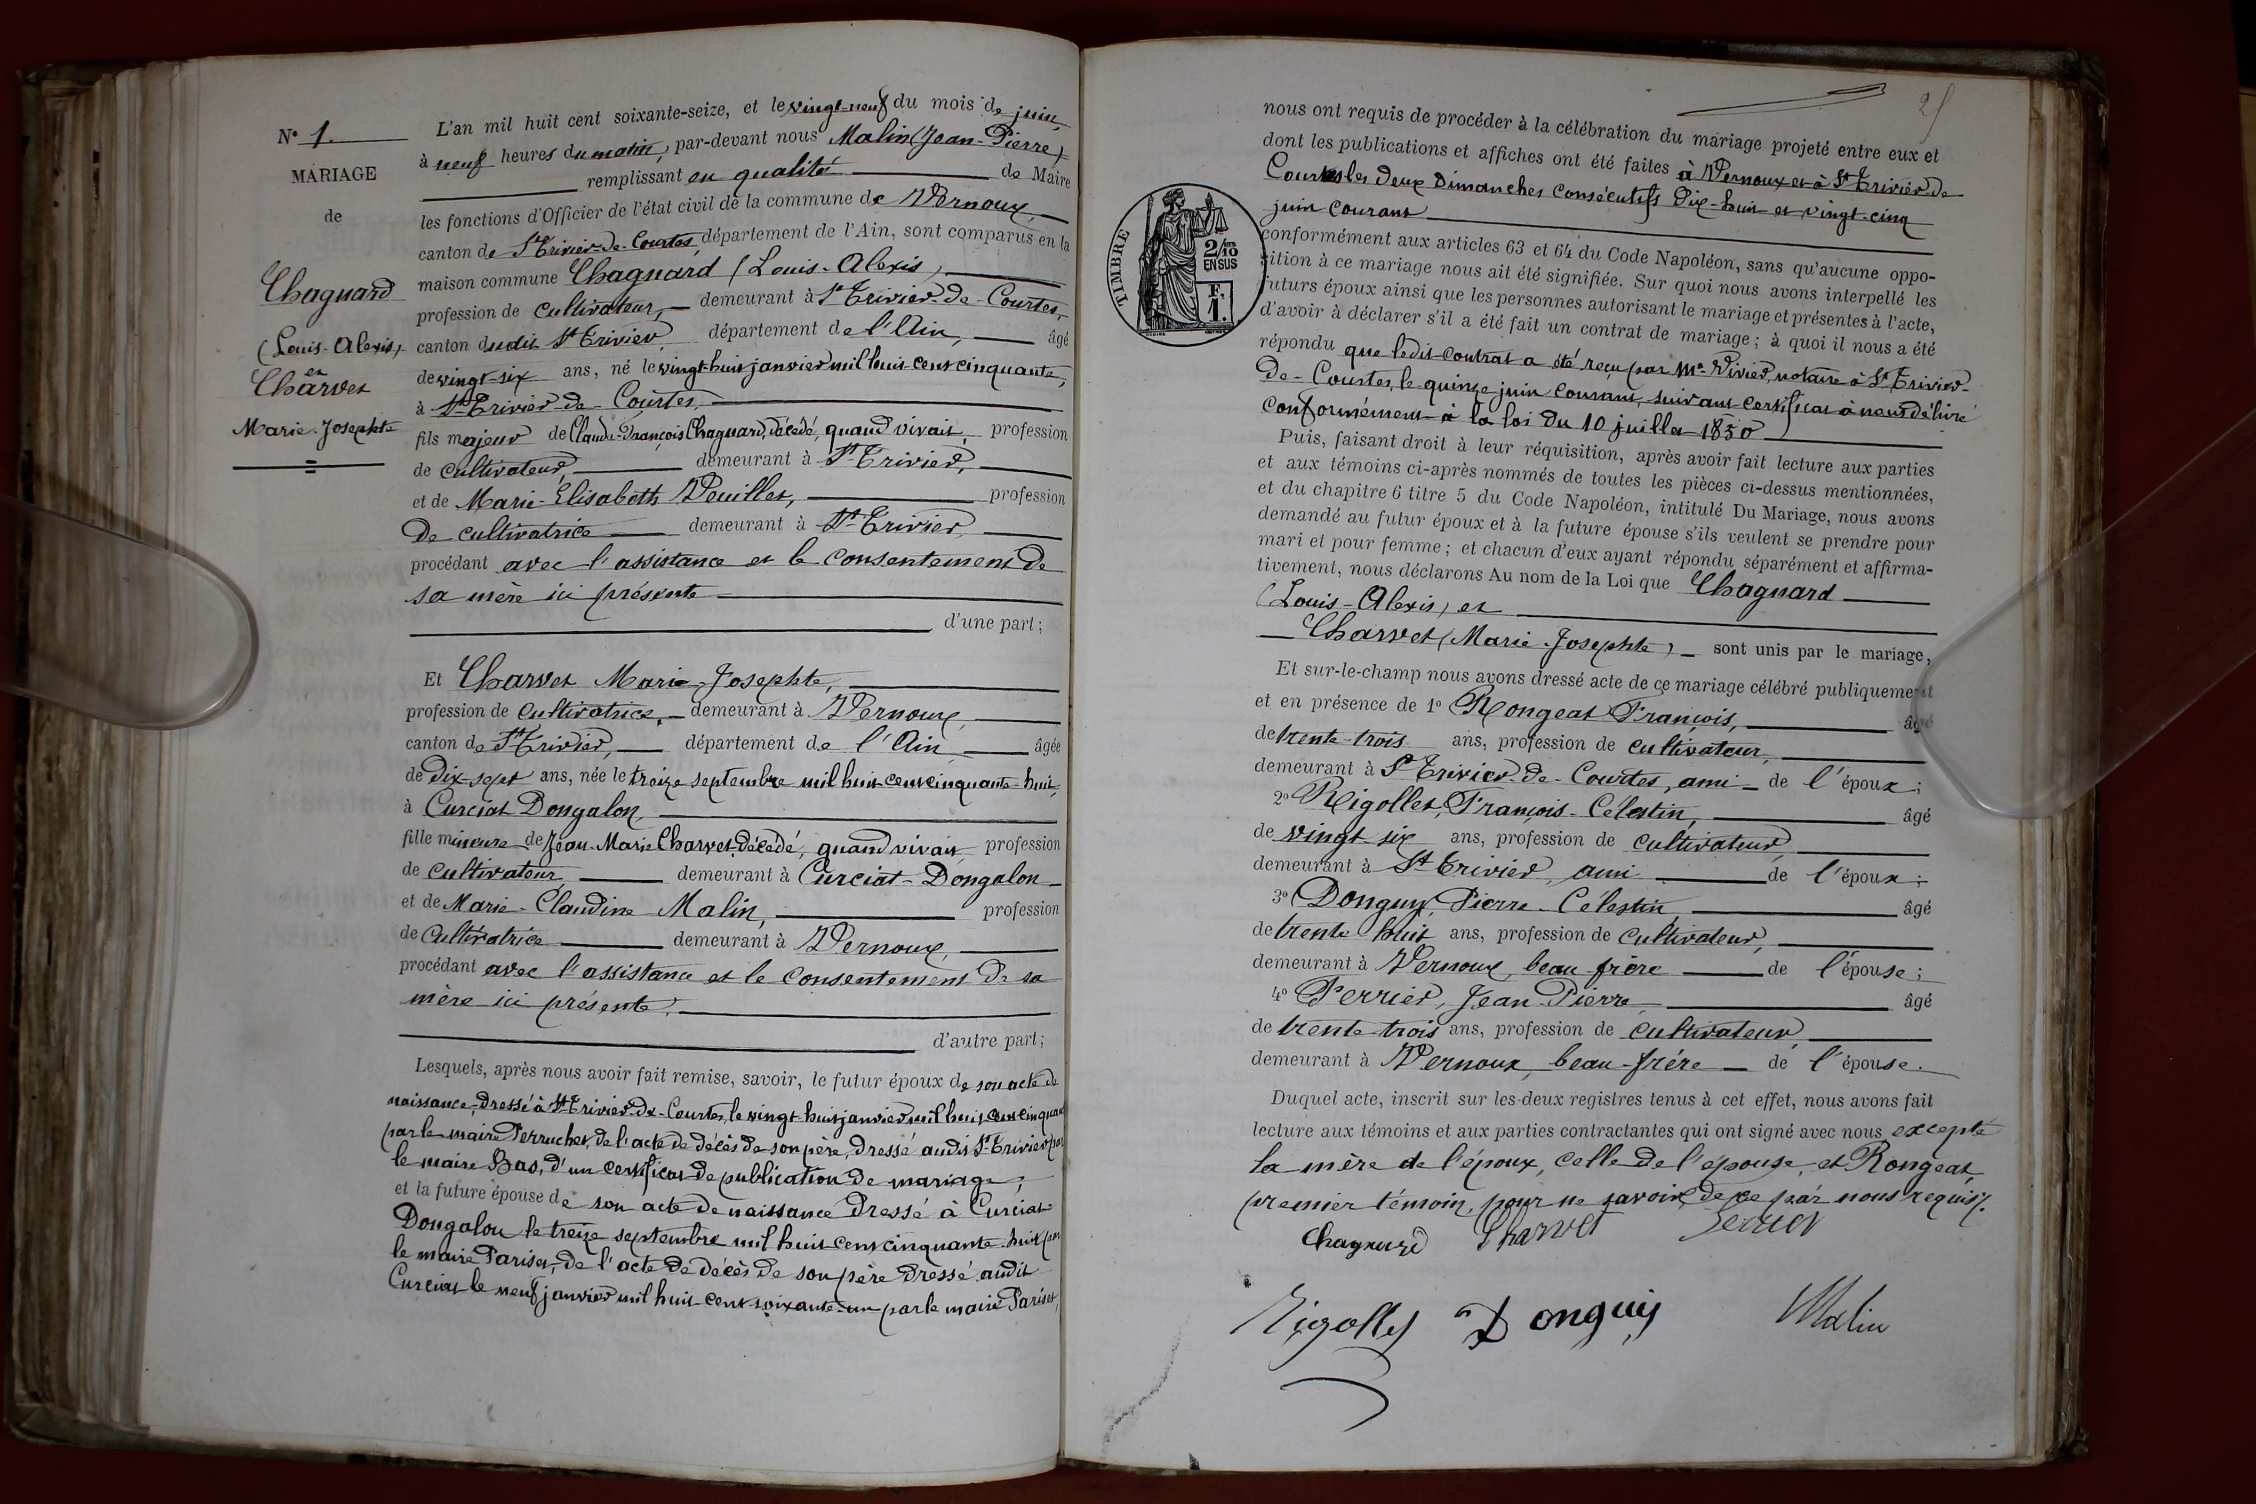 N° 1.
MARIAGE
de
Chagnard
(Louis-Alexis)
et
Charvet
Marie-Josephte
L'an mil huit cent soixante-seize, et le vingt-neuf du mois de juin,
à neuf heures du matin, par-devant nous Malin (Jean-Pierre)
remplissant en qualité de Maire
les fonctions d'Officier de l'état civil de la commune de Vernoux,
canton de St Trivier-de-Courtes, département de l'Ain, sont comparus en la
maison commune Chagnard (Louis-Alexis)
profession de cultivateur, demeurant à St Trivier-de-Courtes,
canton dudit St Trivier, département de l'Ain, âgé
de vingt-six ans, né le vingt-huit janvier mil huit cent cinquante,
à St Trivier-de-Courtes,
fils majeur de Claude-François Chagnard, décédé, quand vivait, profession
de cultivateur, demeurant à St Trivier,
et de Marie-Elisabeth Veuillet, profession
de cultivatrice demeurant à St Trivier,
procédant avec l'assistance et le consentement de
sa mère ici présente
d'une part;
Et Charvet Marie-Josephte,
profession de cultivatrice, demeurant à Vernoux,
canton de St Trivier, département de l'Ain âgée
de dix-sept ans, née le treize septembre mil huit cent cinquante-huit,
à Curciat Dongalon,
fille mineure de Jean-Marie Charvet, décédé, quand vivait, profession
de cultivateur demeurant à Curciat-Dongalon
et de Marie-Claudine Malin, profession
de cultivatrice demeurant à Vernoux,
procédant avec l'assistance et le consentement de sa
mère ici présente,
d'autre part;
Lesquels, après nous avoir fait remise, savoir, le futur époux de son acte de
naissance, dressé à St Trivier-de-Courtes, le vingt-huit janvier mil huit cent cinquante
par le maire Perruchet, de l'acte de décès de son père, dressé audit St Trivier par
le maire Bas, d'un certificat de publication de mariage;
et la future épouse de son acte de naissance dressé à Curciat
Dongalon le treize septembre mil huit cent cinquante-huit par
le maire Pariset, de l'acte de décès de son père dressé audit
Curciat le neuf janvier mil huit cent soixante-un par le maire Pariset,
25
nous ont requis de procéder à la célébration du mariage projeté entre eux et
dont les publications et affiches ont été faites à Vernoux et à St Trivier-de
Courtes les deux Dimanches consécutifs dix-huit et vingt-cinq
juin courant
TIMBRE
2/10 EN SUS
F. 1.
conformément aux articles 63 et 64 du Code Napoléon, sans qu'aucune oppo-
sition à ce mariage nous ait été signifiée. Sur quoi nous avons interpellé les
futurs époux ainsi que les personnes autorisant le mariage et présentes à l'acte,
d'avoir à déclarer s'il a été fait un contrat de mariage; à quoi il nous a été
répondu que ledit contrat a été reçu par Me Vivier, notaire à St Trivier-
de-Courtes, le quinze juin courant, suivant certificat à nous délivré
conformément à la loi du 10 juillet 1850
Puis, faisant droit à leur réquisition, après avoir fait lecture aux parties
et aux témoins ci-après nommés de toutes les pièces ci-dessus mentionnées,
et du chapitre 6 titre 5 du Code Napoléon, intitulé Du Mariage, nous avons
demandé au futur époux et à la future épouse s'ils veulent se prendre pour
mari et pour femme; et chacun d'eux ayant répondu séparément et affirma-
tivement, nous déclarons Au nom de la Loi que Chagnard
(Louis-Alexis) et
Charvet (Marie-Josephte) sont unis par le mariage,
Et sur-le-champ nous avons dressé acte de ce mariage célébré publiquement
et en présence de 1° Rongeat François, âgé
de trente-trois ans, profession de cultivateur,
demeurant à St Trivier-de-Courtes, ami de l'époux;
2° Rigollet, François-Célestin, âgé
de vingt-six ans, profession de cultivateur,
demeurant à St Trivier, ami de l'époux;
3° Donguy, Pierre-Célestin, âgé
de trente-huit ans, profession de cultivateur,
demeurant à Vernoux, beau-frère de l'épouse;
4° Perrier, Jean-Pierre, âgé
de trente-trois ans, profession de cultivateur,
demeurant à Vernoux, beau-frère de l'épouse.
Duquel acte, inscrit sur les deux registres tenus à cet effet, nous avons fait
lecture aux témoins et aux parties contractantes qui ont signé avec nous, excepté
la mère de l'époux, celle de l'épouse, et Rongeat,
premier témoin, pour ne savoir, de ce par nous requis.
Chagnard Charvet Perrier
Rigollet Donguy Malin